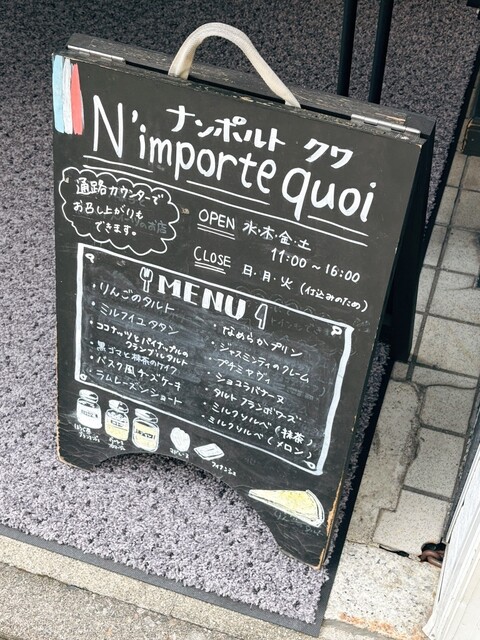 ナンポルト クワ
N'importe quoi
通路カウンターで
お召し上がりも
できます。
OPEN 水・木・金・土
11:00〜16:00
CLOSE 日・月・火(仕込みのため)
MENU
・りんごのタルト
・ミルフイユタタン
・ココナッツとパイナップルの
クランブルタルト
・黒ゴマと抹茶のケイク
・バスク風チーズケーキ
・ラムレーズンショート
・なめらかプリン
・ジャスミンティのクレーム
・プチミャヴィ
・ショコラバナーヌ
・タルトフランボワーズ
・ミルクソルベ(抹茶)
・ミルクソルベ(メロン)